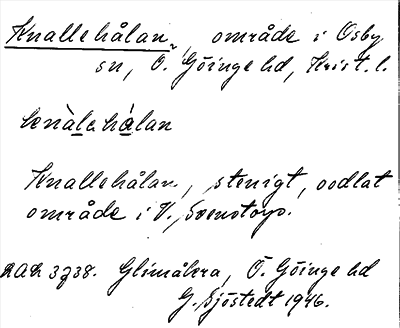 Knallehålan, område i Osby
sn, Ö. Göinge hd, Krist. l.
knàlehålan
Knallehålan, stenigt, oodlat
område i V. Svenstorp.
Glimåkra, Ö. Göinge hd
G. Sjöstedt 1946.